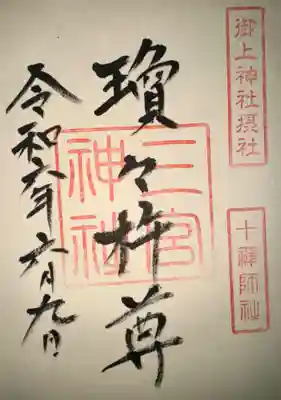 御上神社摂社
十禅師社
瓊々杵尊
三宮
神社
令和六年六月九日